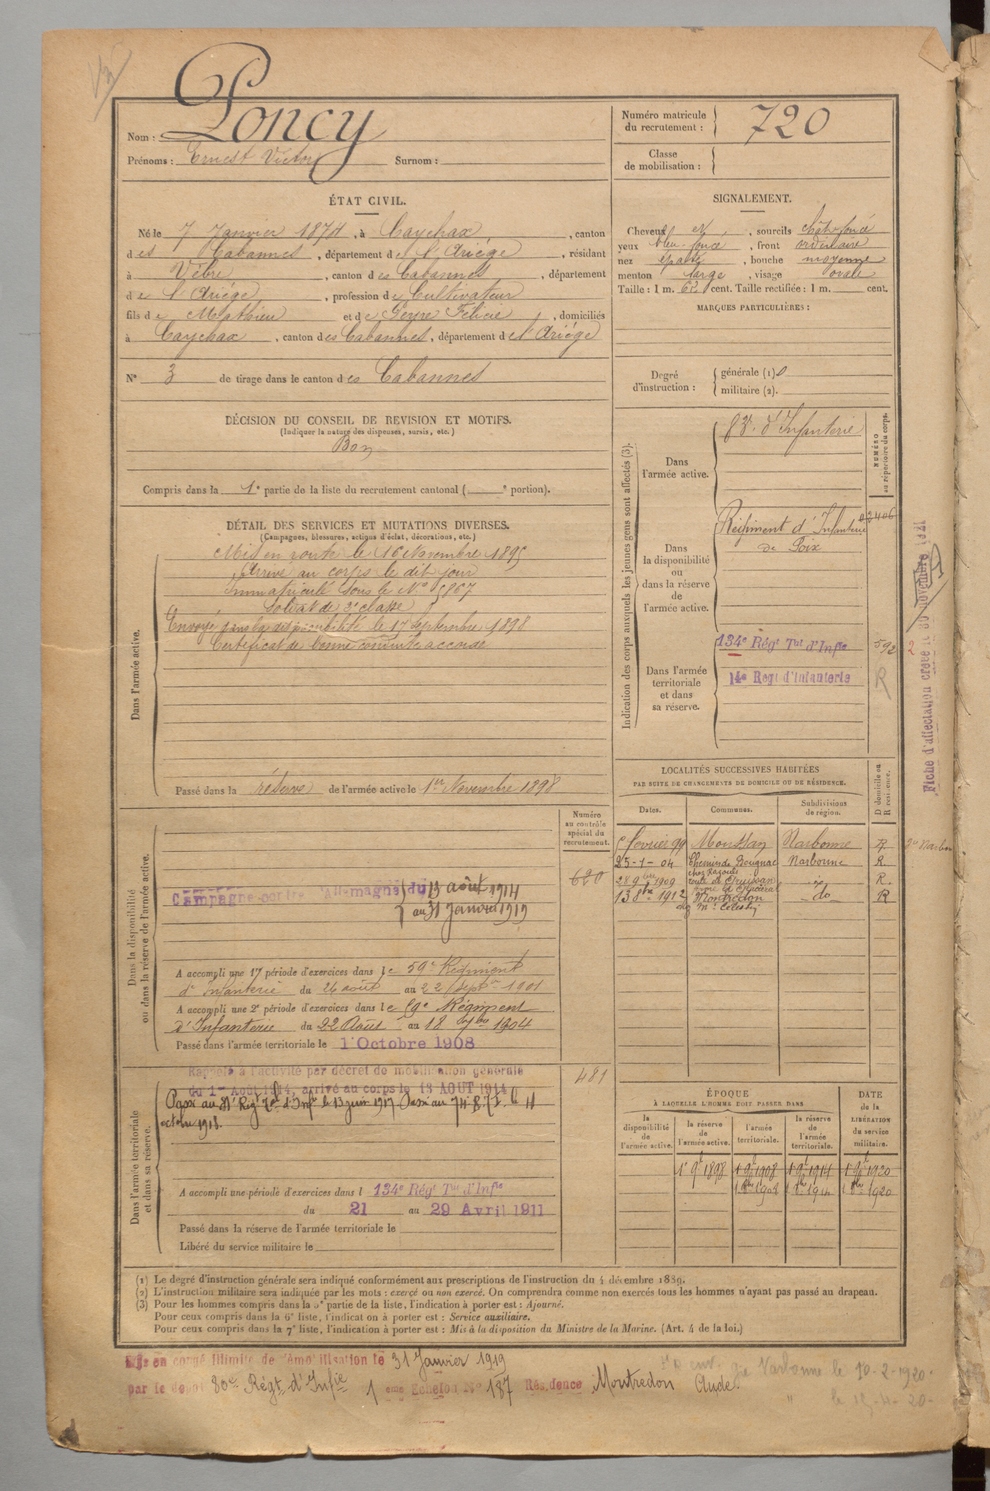 Nom : Poncy
Prénoms : Ernest Victor Surnom :
Numéro matricule du recrutement : 720
Classe de mobilisation :
ÉTAT CIVIL.
Né le 7 Janvier 1874, à Caychax, canton
des Cabannes, département de l'Ariège, résidant
à Vèbre, canton des Cabannes, département
de l'Ariège, profession de Cultivateur
fils de Mathieu et de Peyre Félicie, domiciliés
à Caychax, canton des Cabannes, département de l'Ariège
N° 3 de tirage dans le canton des Cabannes
SIGNALEMENT.
Cheveux et, sourcils chât-foncé
yeux bleu-foncé, front ordinaire
nez épaté, bouche moyenne
menton large, visage ovale
Taille : 1 m. 62 cent. Taille rectifiée : 1 m. cent.
MARQUES PARTICULIÈRES :
Degré d'instruction : générale (1) 0
militaire (2).
DÉCISION DU CONSEIL DE REVISION ET MOTIFS.
(Indiquer la nature des dispenses, sursis, etc.)
Bon
Compris dans la 1e partie de la liste du recrutement cantonal ( e portion).
DÉTAIL DES SERVICES ET MUTATIONS DIVERSES.
(Campagnes, blessures, actions d'éclat, décorations, etc.)
Dans l'armée active.
Mis en route le 16 Novembre 1895
Arrivé au corps le dit jour
Immatriculé sous le N° 5867
Soldat de 2e classe
Envoyé dans la disponibilité le 17 Septembre 1898
Certificat de bonne conduite accordé
Passé dans la réserve de l'armée active le 1er Novembre 1898
Indication des corps auxquels les jeunes gens sont affectés (3).
NUMÉRO au répertoire du corps.
Dans l'armée active.
83e d'Infanterie
Dans la disponibilité ou dans la réserve de l'armée active.
Régiment d'Infanterie
de Foix
Dans l'armée territoriale et dans sa réserve.
134e Régt Tal d'Infie 592
14e Régt d'Infanterie R
Fiche d'affectation créée le 30 novembre 1921
LOCALITÉS SUCCESSIVES HABITÉES
PAR SUITE DE CHANGEMENTS DE DOMICILE OU DE RÉSIDENCE.
Dates. Communes. Subdivisions de région. D domicile ou R résidence.
février 99 Narbonne R
25-1-04 Narbonne R
1909 R.
13 8bre 1912 Montredon do R
Dans la disponibilité ou dans la réserve de l'armée active.
Numéro au contrôle spécial du recrutement.
620
Campagne contre l'Allemagne du 13 août 1914
au 31 Janvier 1919
A accompli une 1re période d'exercices dans le 59e Régiment
d'Infanterie du 26 août au 22 Septre 1901
A accompli une 2e période d'exercices dans le 59e Régiment
d'Infanterie du 22 Août au 18 1904
Passé dans l'armée territoriale le 1er Octobre 1908
Dans l'armée territoriale et dans sa réserve.
481
Rappelé à l'activité par décret de mobilisation générale
du 1er Août 1914, arrivé au corps le 13 AOUT 1914
Passé au Régt d'Infie le 13 juin 1917 Passé au
octobre 1918.
A accompli une période d'exercices dans l 134e Régt Tal d'Infie
du 21 au 29 Avril 1911
Passé dans la réserve de l'armée territoriale le
Libéré du service militaire le
ÉPOQUE
À LAQUELLE L'HOMME DOIT PASSER DANS
DATE de la LIBÉRATION du service militaire.
la disponibilité de l'armée active. la réserve de l'armée active. l'armée territoriale. la réserve de l'armée territoriale.
1er 9bre 1898 1er 9bre 1908 1er 9bre 1914 1er 9bre 1920
1er 8bre 1908 1er 8bre 1914 1er 8bre 1920
(1) Le degré d'instruction générale sera indiqué conformément aux prescriptions de l'instruction du 4 décembre 1889.
(2) L'instruction militaire sera indiquée par les mots : exercé ou non exercé. On comprendra comme non exercés tous les hommes n'ayant pas passé au drapeau.
(3) Pour les hommes compris dans la 5e partie de la liste, l'indication à porter est : Ajourné.
Pour ceux compris dans la 6e liste, l'indication à porter est : Service auxiliaire.
Pour ceux compris dans la 7e liste, l'indication à porter est : Mis à la disposition du Ministre de la Marine. (Art. 4 de la loi.)
Mis en congé illimité de démobilisation le 31 Janvier 1919
par le dépôt 80me Régt d'Infie 1eme Echelon N° 187 Résidence Montredon Aude.
Narbonne le 10-2-1920